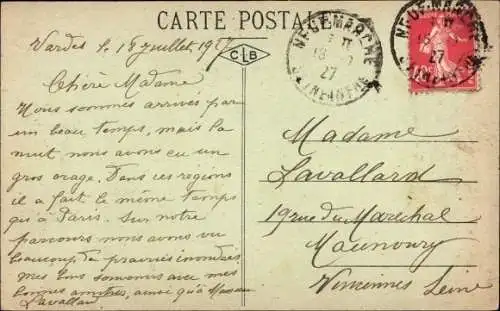 CARTE POSTALE
Vardes le 18 juillet 1927
CLB
NEUFMARCHE
18
27
SEINE INFRE
NEUFMARCHE
18
27
Chère Madame
Nous sommes arrivés par
un beau temps, mais la
nuit nous avons eu un
gros orage. Dans ces regions
il a fait le même temps
qu'à Paris. Sur notre
parcours nous avons vu
beaucoup de prairies inondées
mes bons souvenirs avec mes
bonnes amitiés, ainsi qu'à Monsieur
Lavallard
Madame
Lavallard
19 rue du Maréchal
Maunoury
Vincennes Seine